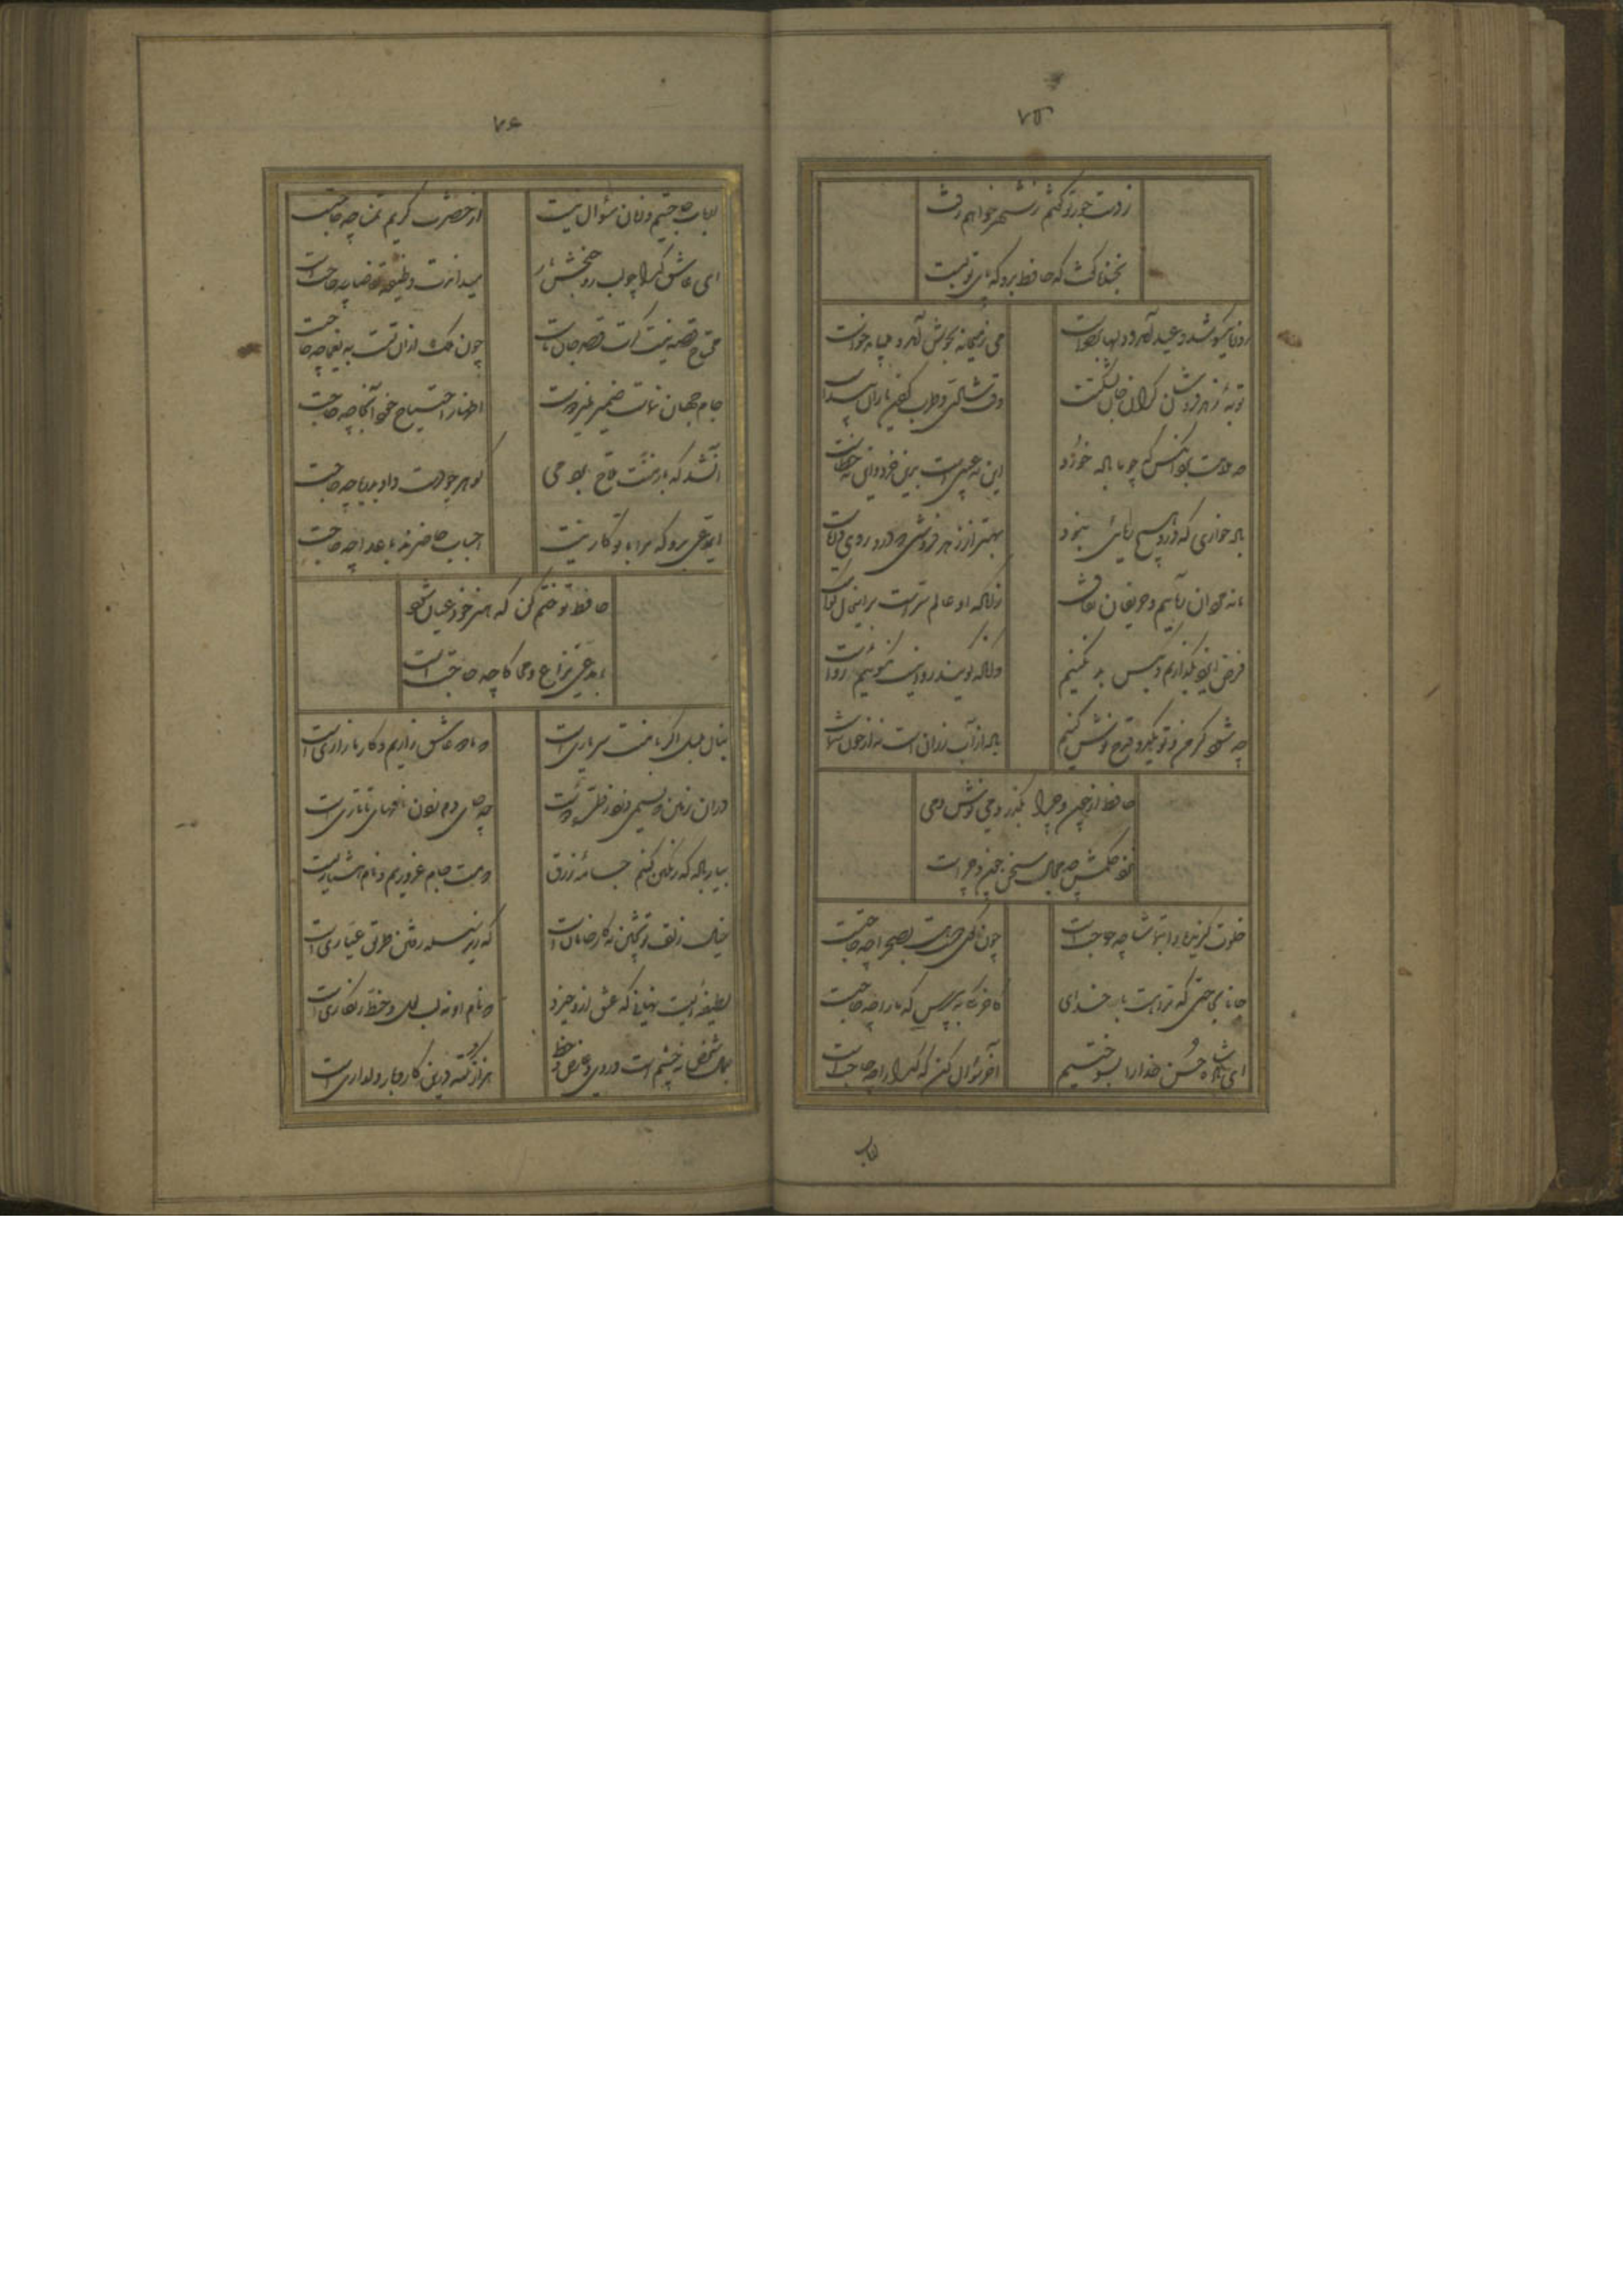 ۷۵
ز دست جور تو گفتم ز شهر خواهم رفت
بخنده گفت که حافظ برو که پای تو بست
روزه یکسو شد و عید آمد و دلها برخاست
می ز میخانه بجوش آمد و میباید خواست
توبهٔ زهد فروشان گران جان بگذشت
وقت شادی و طرب کردن یاران پیداست
چه ملامت بود آنکس که چو ما باده خورد
این نه عیبی است برین خرده و این نه خطاست
باده خواری که درو هیچ ریائی نبود
بهتر از زهد فروشی که درو روی و ریاست
ما نه مردان ریائیم و حریفان نفاق
آنکه او عالم سر است برین حال گواست
فرض ایزد بگذاریم و بکس بد نکنیم
وانکه گویند روا نیست نگوئیم رواست
چه شود گر من و تو یکدو قدح نوش کنیم
باده از آب رزان است نه از خون شماست
حافظ از چون و چرا بگذر و می نوش دمی
نزد حکمش چه مجال سخن چون و چراست
خلوت گزیده را بتماشا چه حاجت است
چون کوی دوست هست بصحرا چه حاجت است
جانا بحاجتی که ترا هست با خدای
کاخر دمی بپرس که ما را چه حاجت است
ای پادشاه حسن خدا را بسوختیم
آخر سؤال کن که گدا را چه حاجت است
ارباب
۷۶
ارباب حاجتیم و زبان سؤال نیست
از حضرت کریم تمنا چه حاجت است
ای عاشق گدا چو لب روح بخش یار
میداندت وظیفه تقاضا چه حاجت است
محتاج قصه نیست گرت قصد جان ماست
چون ملک ازان تست به یغما چه حاجت است
جام جهان نماست ضمیر منیر دوست
اظهار احتیاج خود آنجا چه حاجت است
آنشد که بار منت ملاح بردمی
گوهر چو دست داد بدریا چه حاجت است
ای مدعی برو که مرا با تو کار نیست
احباب حاضرند باعدا چه حاجت است
حافظ تو ختم کن که هنر خود عیان شود
با مدعی نزاع و محاکا چه حاجت است
بنال بلبل اگر با منت سر یاری است
که ما دو عاشق زاریم و کار ما زاری است
در آن زمین که نسیمی وزد ز طره دوست
چه جای دم زدن نافهای تاتاری است
بیار باده که رنگین کنیم جامهٔ زرق
که مست جام غروریم و نام هشیاریست
خیال زلف تو پختن نه کار خامان است
که زیر سلسله رفتن طریق عیاری است
لطیفه ایست نهانی که عشق ازو خیزد
که نام او نه لب لعل و خط زنگاری است
جمال شخص نه چشم است و روی و عارض و خط
هزار نکته درین کار و بار دلداری است